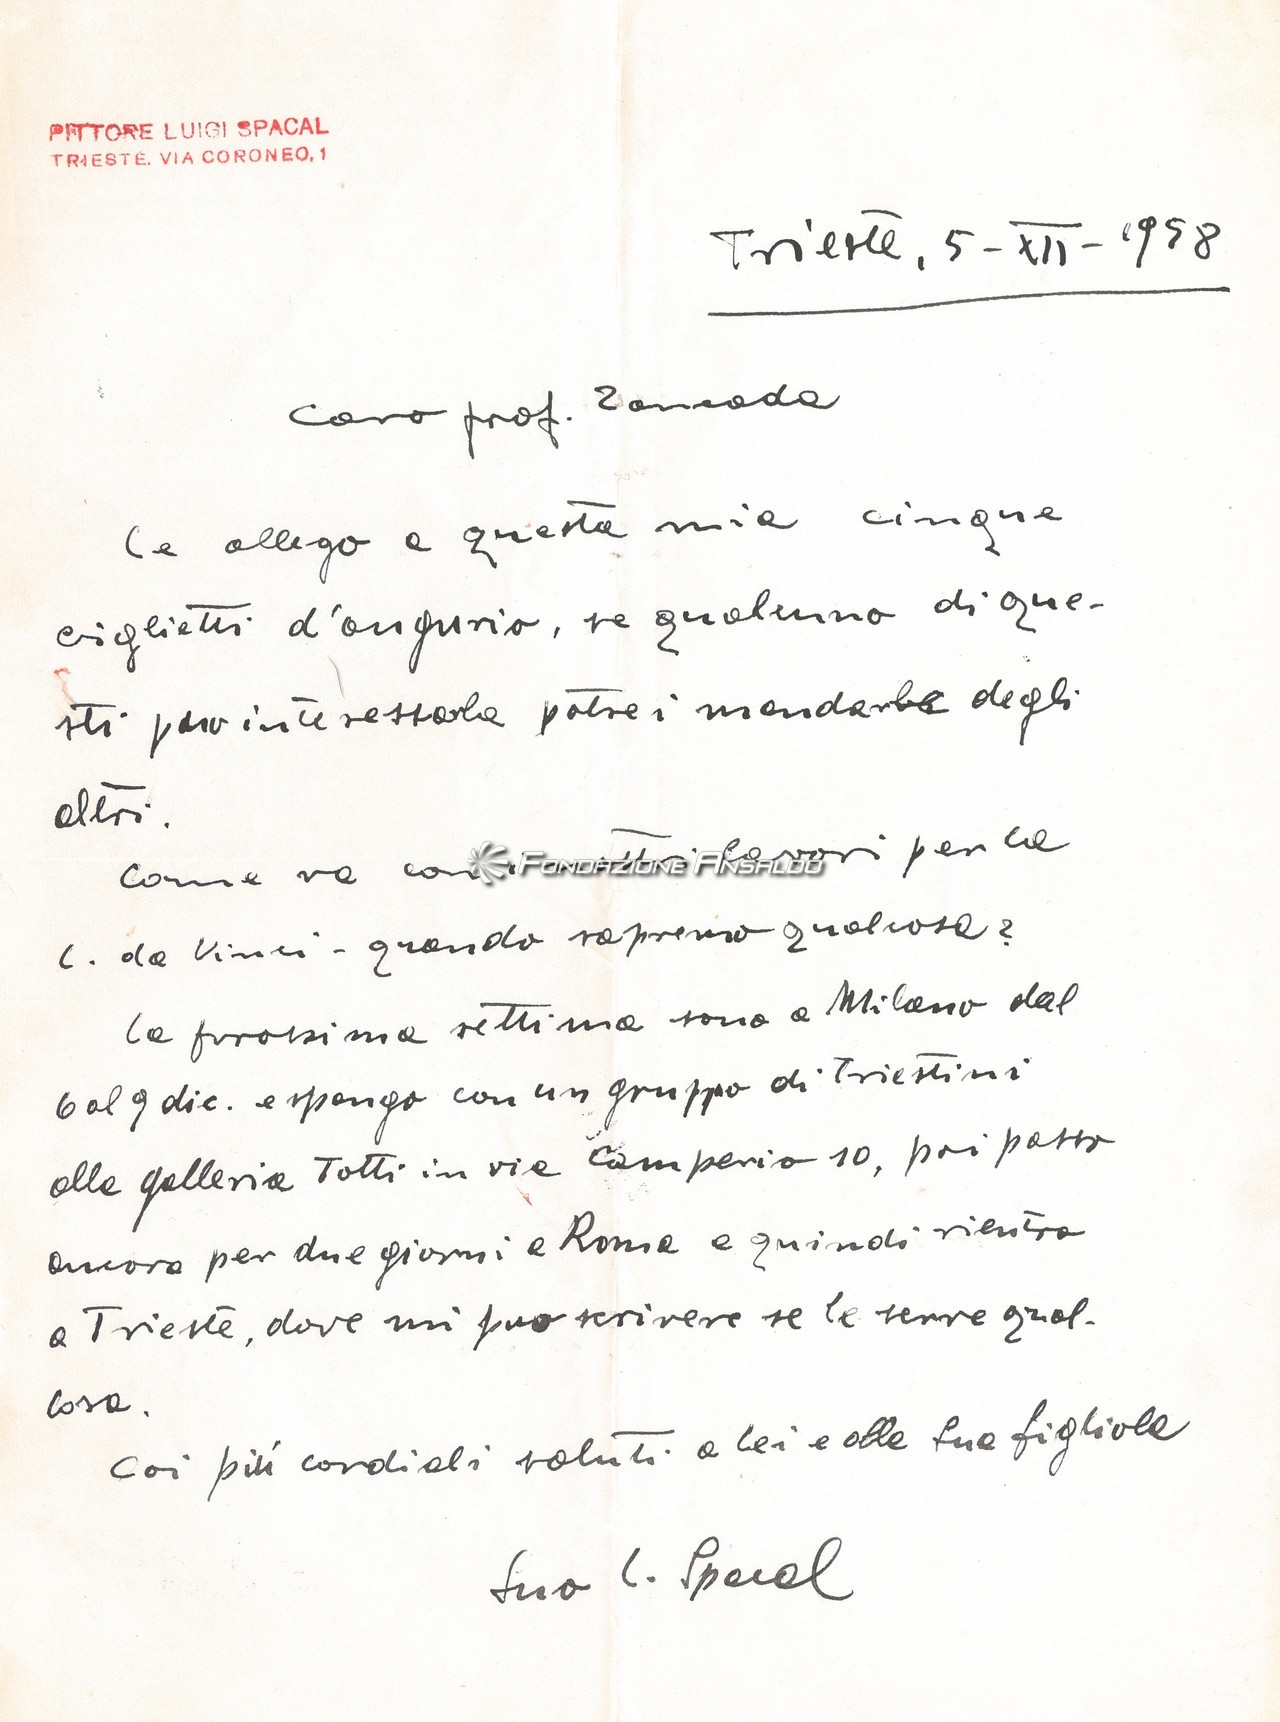 PITTORE LUIGI SPACAL
TRIESTE. VIA CORONEO, 1
Trieste, 5-XII-1958
Caro prof. Zancada
Le allego a questa mia cinque
biglietti d'augurio, se qualcuno di que-
sti può interessarla potrei mandarle degli
altri.
Come va con i lavori per la
FONDAZIONE ANSALDO
L. da Vinci - quando sapremo qualcosa?
La prossima settima sono a Milano dal
6 al 9 dic. espongo con un gruppo di Triestini
alla galleria Totti in via Camperio 10, poi passo
ancora per due giorni a Roma e quindi rientro
a Trieste, dove mi può scrivere se le serve qual-
cosa.
Coi più cordiali saluti a Lei e alla Sua figliola
Suo L. Spacal